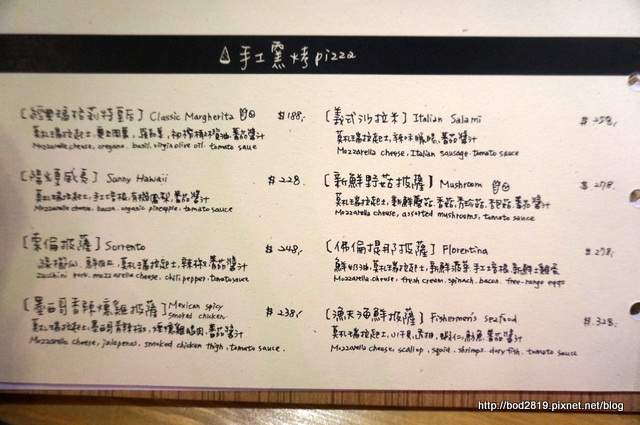 手工窯烤pizza
[經典瑪格莉特夏后] Classic Margherita $188.
莫札瑞拉起士, 奧勒岡葉, 羅勒葉, 初榨橄欖油, 蕃茄醬汁
Mozzarella cheese, oregano, basil, virgin olive oil, tomato sauce
[陽光夏威夷] Sunny Hawaii $228.
莫札瑞拉起士, 手工培根, 有機鳳梨, 蕃茄醬汁
Mozzarella cheese, bacon, organic pineapple, tomato sauce
[索倫披薩] Sorrento $248.
鮮 莫札瑞拉起士, 辣椒, 蕃茄醬汁
Zucchini pork, mozzarella cheese, chili pepper, tomato sauce
[墨西哥香辣燻雞披薩] Mexican spicy smoked chicken $238.
莫札瑞拉起士, 墨西哥香辣椒, 煙燻雞腿肉, 蕃茄醬汁
Mozzarella cheese, jalapenos, smoked chicken thigh, tomato sauce.
[義式沙拉米] Italian Salami $258.
莫札瑞拉起士, 辣味臘腸, 蕃茄醬汁
Mozzarella cheese, Italian sausage, tomato sauce
[新鮮野菇披薩] Mushroom $278.
莫札瑞拉起士, 新鮮蘑菇, 香菇, 秀珍菇, 杏鮑菇, 蕃茄醬汁
Mozzarella cheese, assorted mushrooms, tomato sauce
[佛倫提那披薩] Florentina $278.
鮮奶油, 莫札瑞拉起士, 新鮮菠菜, 手工培根, 新鮮土雞蛋
Mozzarella cheese, fresh cream, spinach, bacon, free-range eggs
[漁夫海鮮披薩] Fishermen's seafood $328.
莫札瑞拉起士, 小干貝, 透抽, 蝦仁, 魚, 蕃茄醬汁
Mozzarella cheese, scallop, squid, shrimps, dory fish, tomato sauce
http://bod2819.pixnet.net/blog